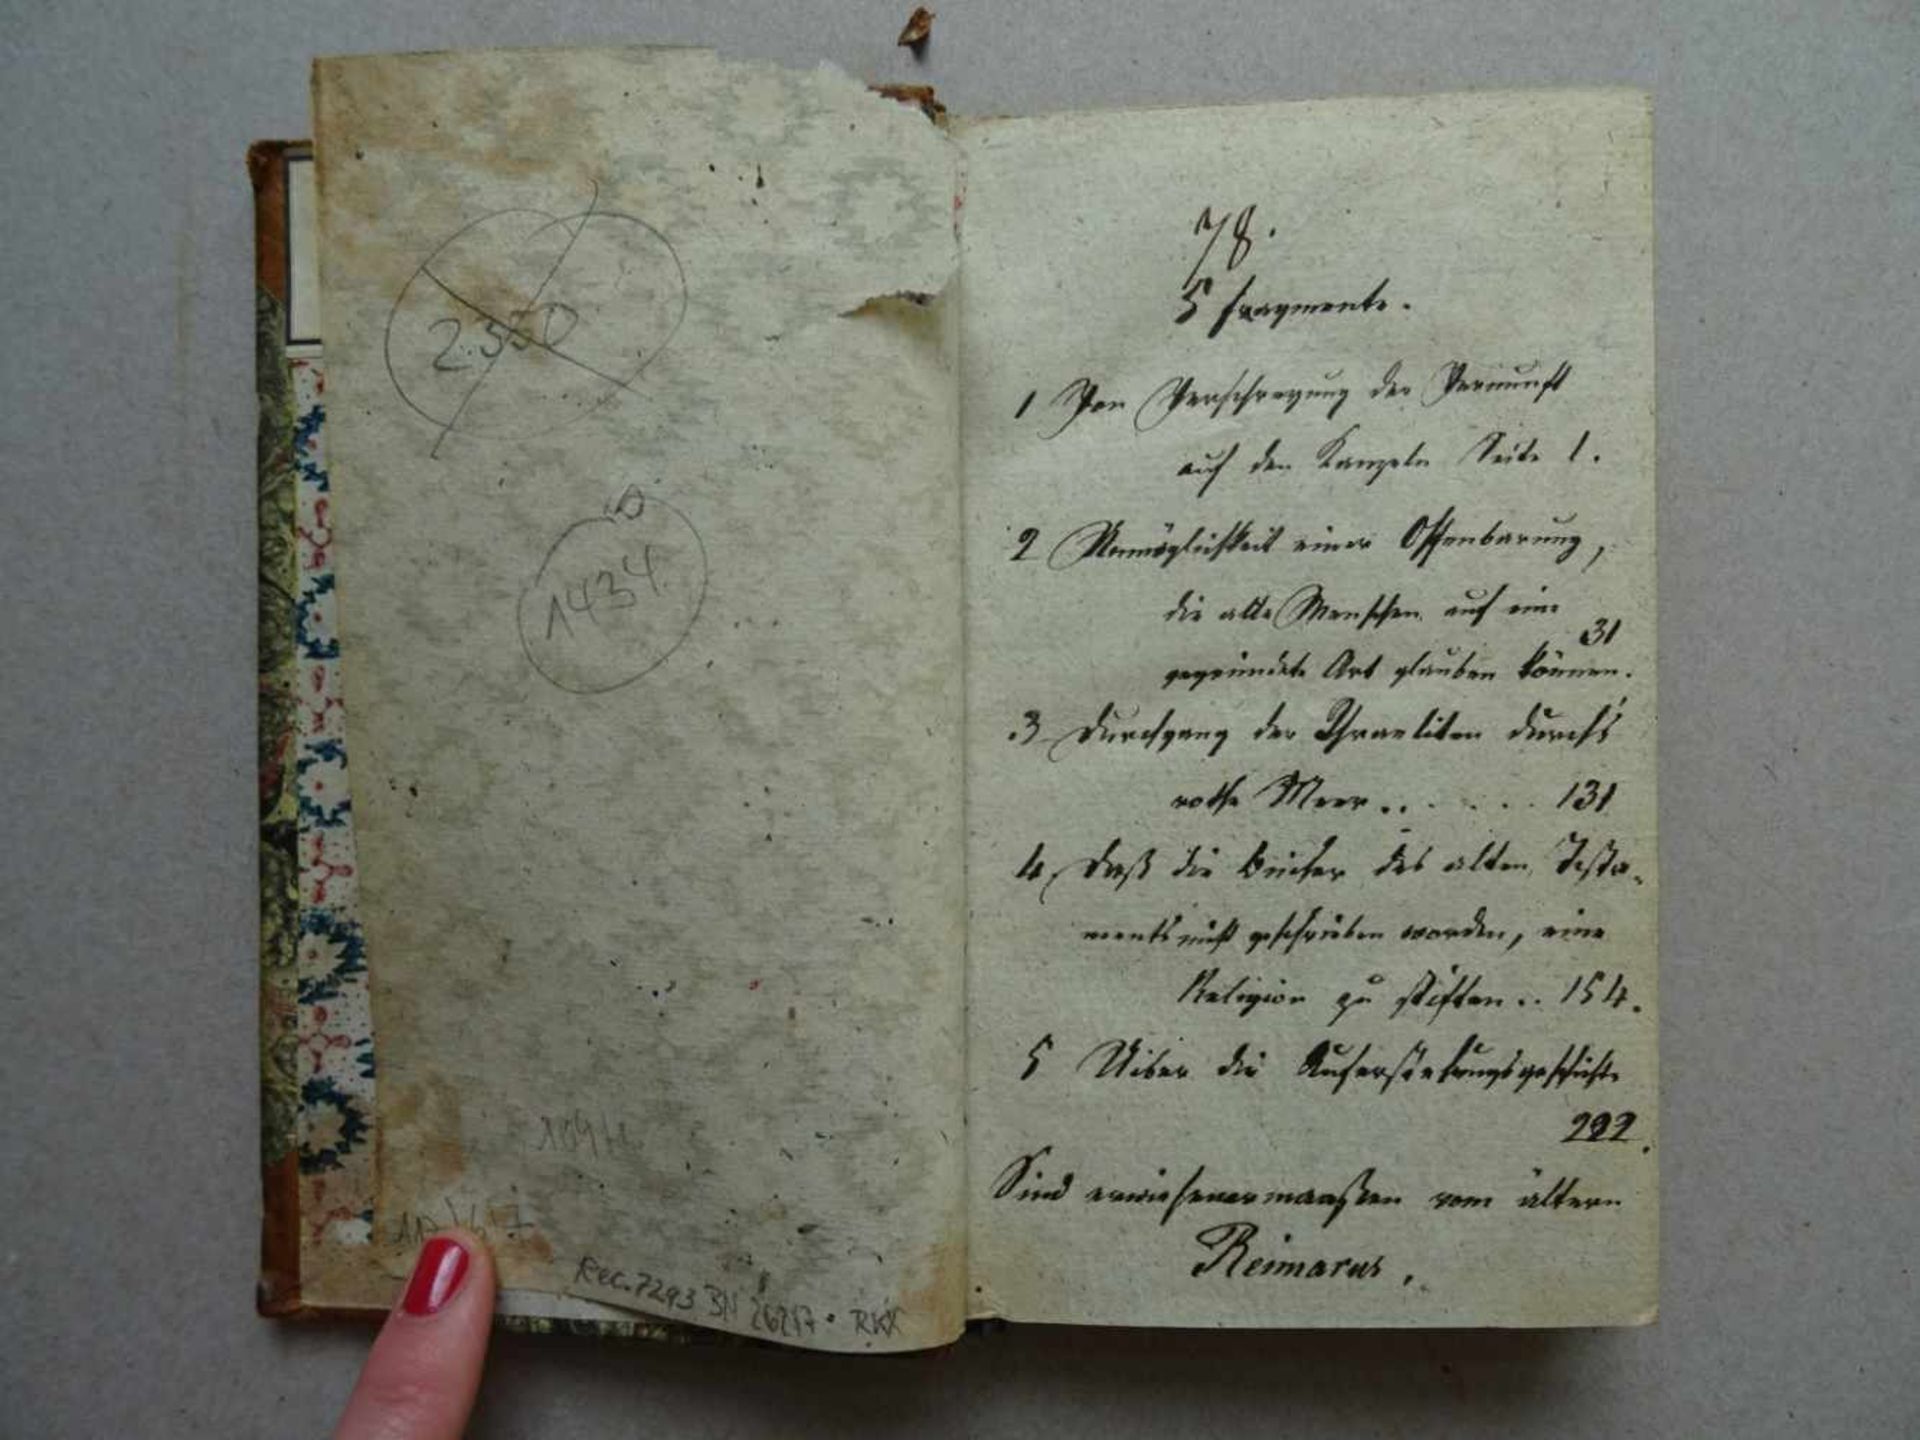 2350
1434
Rec. 7293 BN 26217 • RKK
78.
5 Fragmente.
1 Von Verschreyung der Vernunft
auf den Kanzeln Seite 1.
2 Unmöglichkeit einer Offenbarung,
die alle Menschen auf eine
31
gegründete Art glauben können.
3 Durchgang der Israeliten durch's
rothe Meer . . . . . . 131
4 Daß die Bücher des alten Testa-
ments nicht geschrieben worden, eine
Religion zu stiften . . 154.
5 Uiber die Auferstehungsgeschichte
292.
Sind erwiesenermaaßen vom ältern
Reimarus.